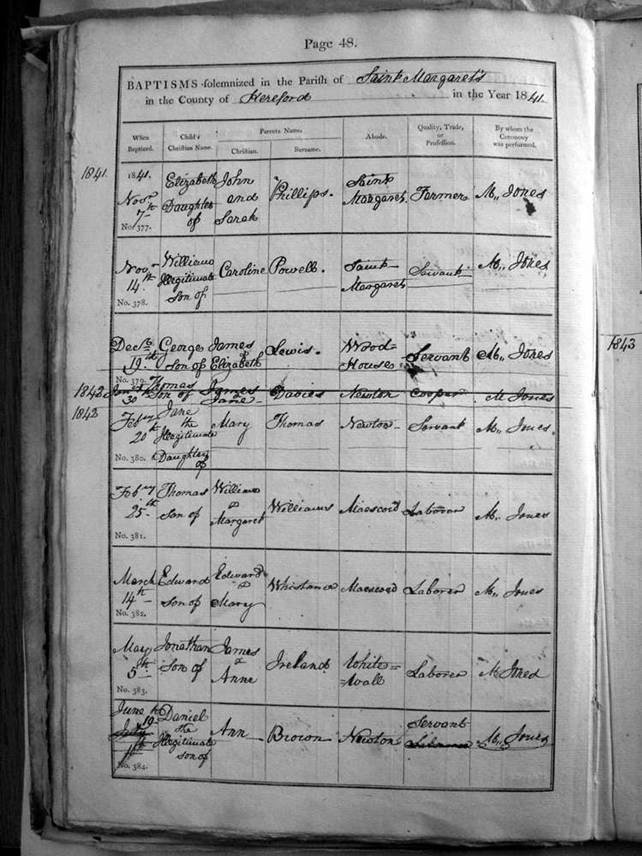 Page 48.
BAPTISMS solemnized in the Parish of Saint Margaret's
in the County of Hereford in the Year 1841.
When Baptized. Child's Christian Name. Parents Name. Christian. Surname. Abode. Quality, Trade, or Profession. By whom the Ceremony was performed.
1841
1841.
Novr 7th
No. 377.
Elizabeth
Daughter
of
John
and
Sarah
Phillips.
Saint
Margarets
Farmer
M,, Jones
Novr
14th
No. 378.
William
Illegitimate
Son of
Caroline
Powell.
Saint
Margarets
Servant
M,, Jones
Decbr
19th
No. 379.
George
Son of
James
&
Elizabeth
Lewis.
Wood-
Houses
Servant
M,, Jones
1842
30
Thomas
Son of
James
Jane
Davies
Newton
Cooper
M Jones
1843
Feby
20th
No. 380.
Jane
the
Illegitimate
Daughter
of
Mary
Thomas
Newton
Servant
M,, Jones.
Feby
25th
No. 381.
Thomas
Son of
William
&
Margaret
Williams
Maescoed
Laborer
M,, Jones
March
14th
No. 382.
Edward
Son of
Edward
&
Mary
Whistance
Maescoed
Laborer
M,, Jones
May
5th
No. 383.
Jonathan
Son of
James
&
Anne
Ireland
White=
=Wall
Laborer
M Jones
June
19th
July
No. 384.
Daniel
the
Illegitimate
son of
Ann
Brown
Newton
Servant
Laborer
M,, Jones
1843